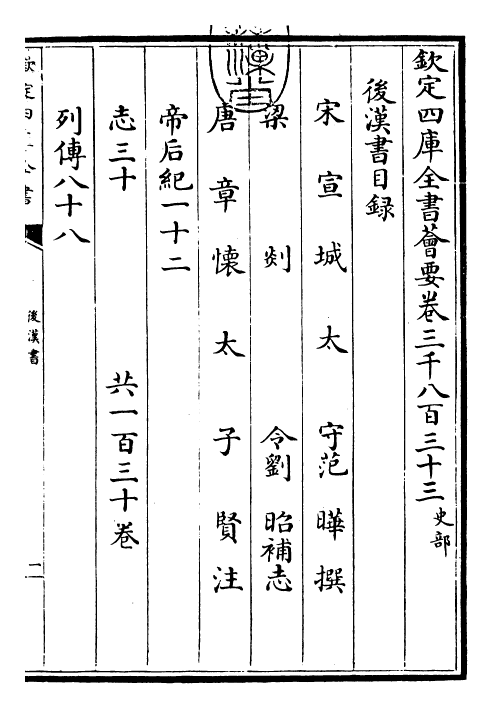 欽定四庫全書薈要卷三千八百三十三 史部
後漢書目録
宋宣城太守范曄撰
梁剡令劉昭補志
唐章懐太子賢注
帝后紀一十二
志三十 共一百三十卷
列傳八十八
後漢書
二